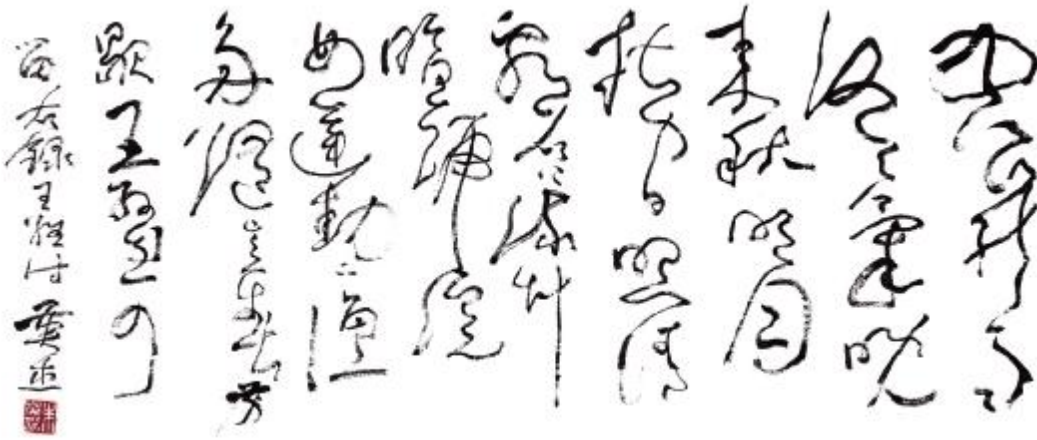 空山新雨
後天氣晚
来秋明月
松间照清
泉石上流竹
喧歸浣
女蓮動下漁
舟随意春芳
歇王孫自可
留右録王維詩